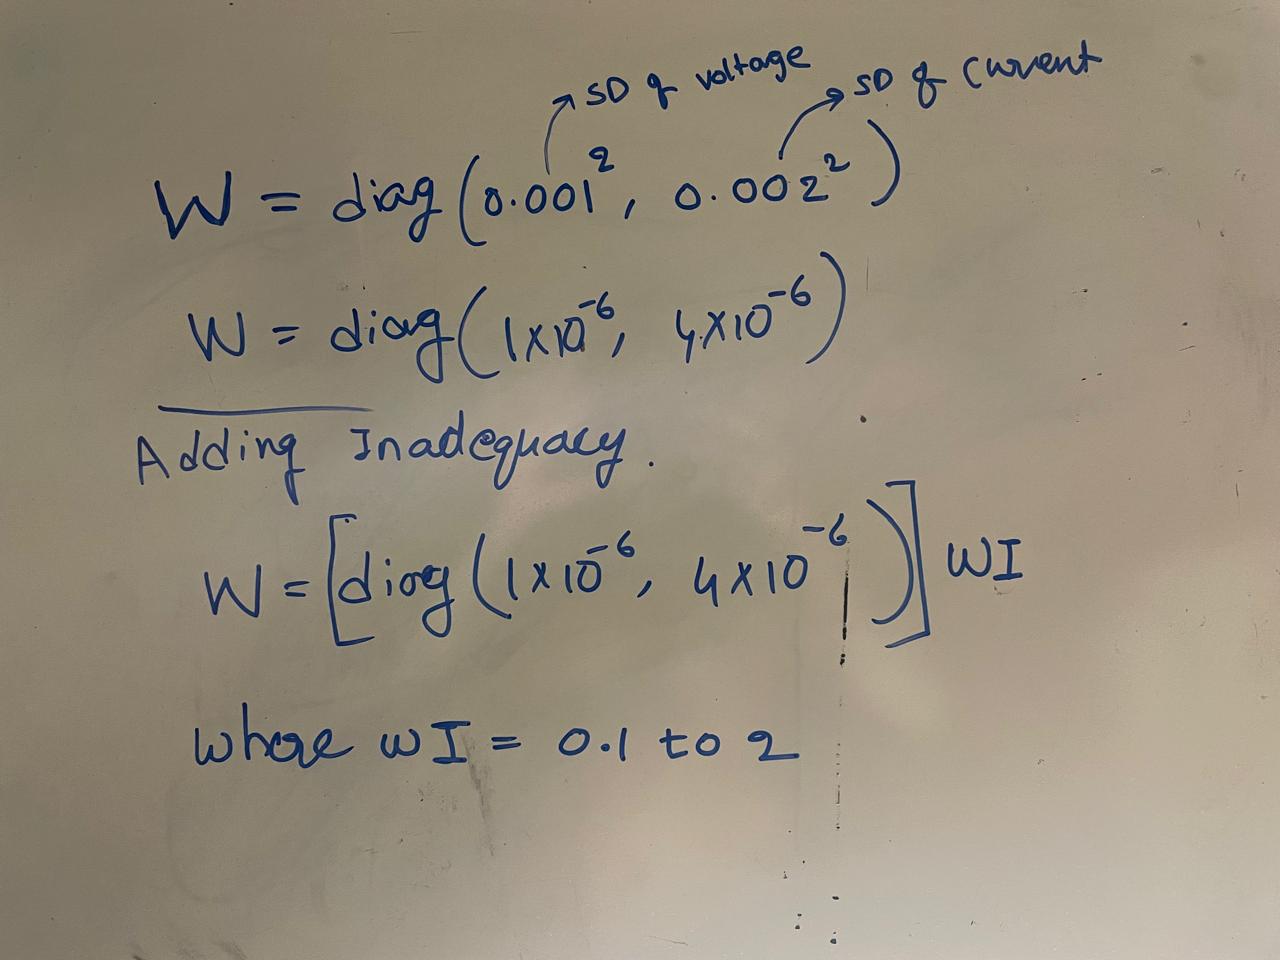 → SD of voltage → SD of Current
W = diag(0.001², 0.002²)
W = diag(1×10⁻⁶, 4×10⁻⁶)
Adding Inadequacy.
W = [diag(1×10⁻⁶, 4×10⁻⁶)] WI
Where WI = 0.1 to 2